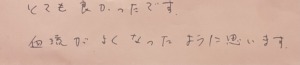 とても良かったです。
血後が よくなった ように思います。